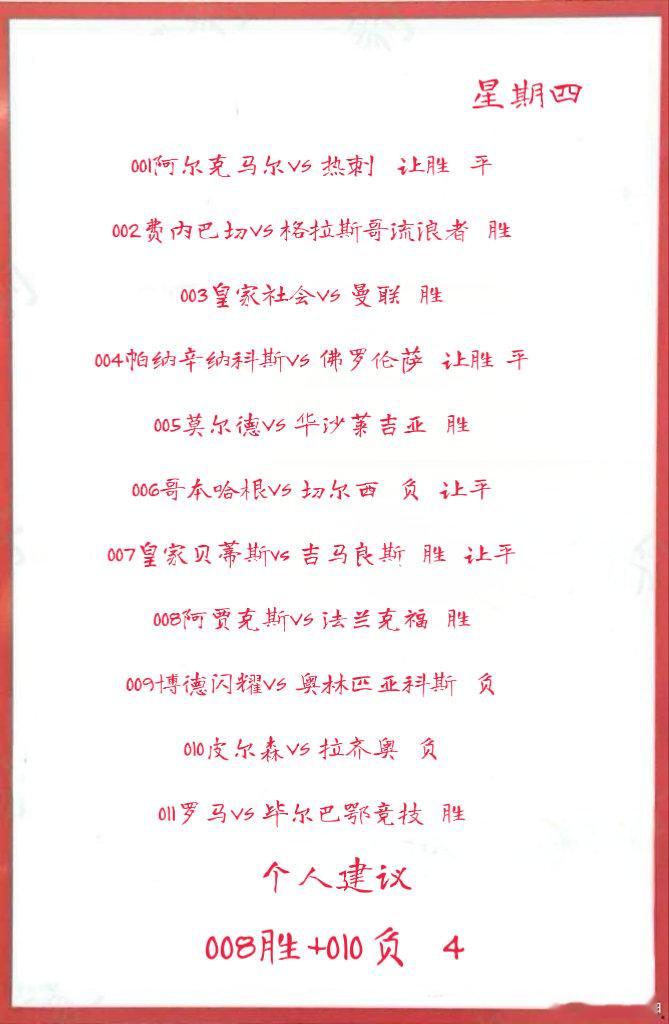 星期四
001阿尔克马尔vs 热刺 让胜 平
002费内巴切vs 格拉斯哥流浪者 胜
003皇家社会vs 曼联 胜
004帕纳辛纳科斯vs 佛罗伦萨 让胜 平
005莫尔德vs 华沙莱吉亚 胜
006哥本哈根vs 切尔西 负 让平
007皇家贝蒂斯vs 吉马良斯 胜 让平
008阿贾克斯vs 法兰克福 胜
009博德闪耀vs 奥林匹亚科斯 负
010皮尔森vs 拉齐奥 负
011罗马vs 毕尔巴鄂竞技 胜
个人建议
008胜+010负 4